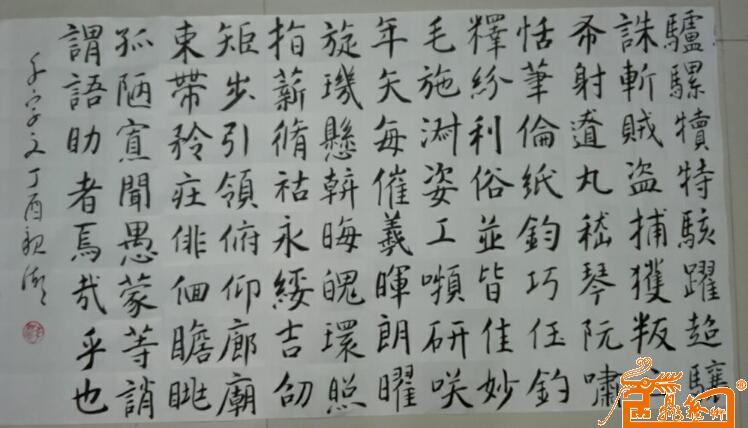 驢騾犢特駭躍超驤
誅斬賊盜捕獲叛
布射遼丸嵇琴阮嘯
恬筆倫紙鈞巧任釣
釋紛利俗並皆佳妙
毛施淑姿工嚬研咲
年矢每催羲暉朗曜
旋璣懸斡晦魄環照
指薪脩祜永綏吉劭
矩步引領俯仰廊廟
束帶矜莊俳佪瞻眺
孤陋寡聞愚蒙等誚
謂語助者焉哉乎也
千字文丁酉